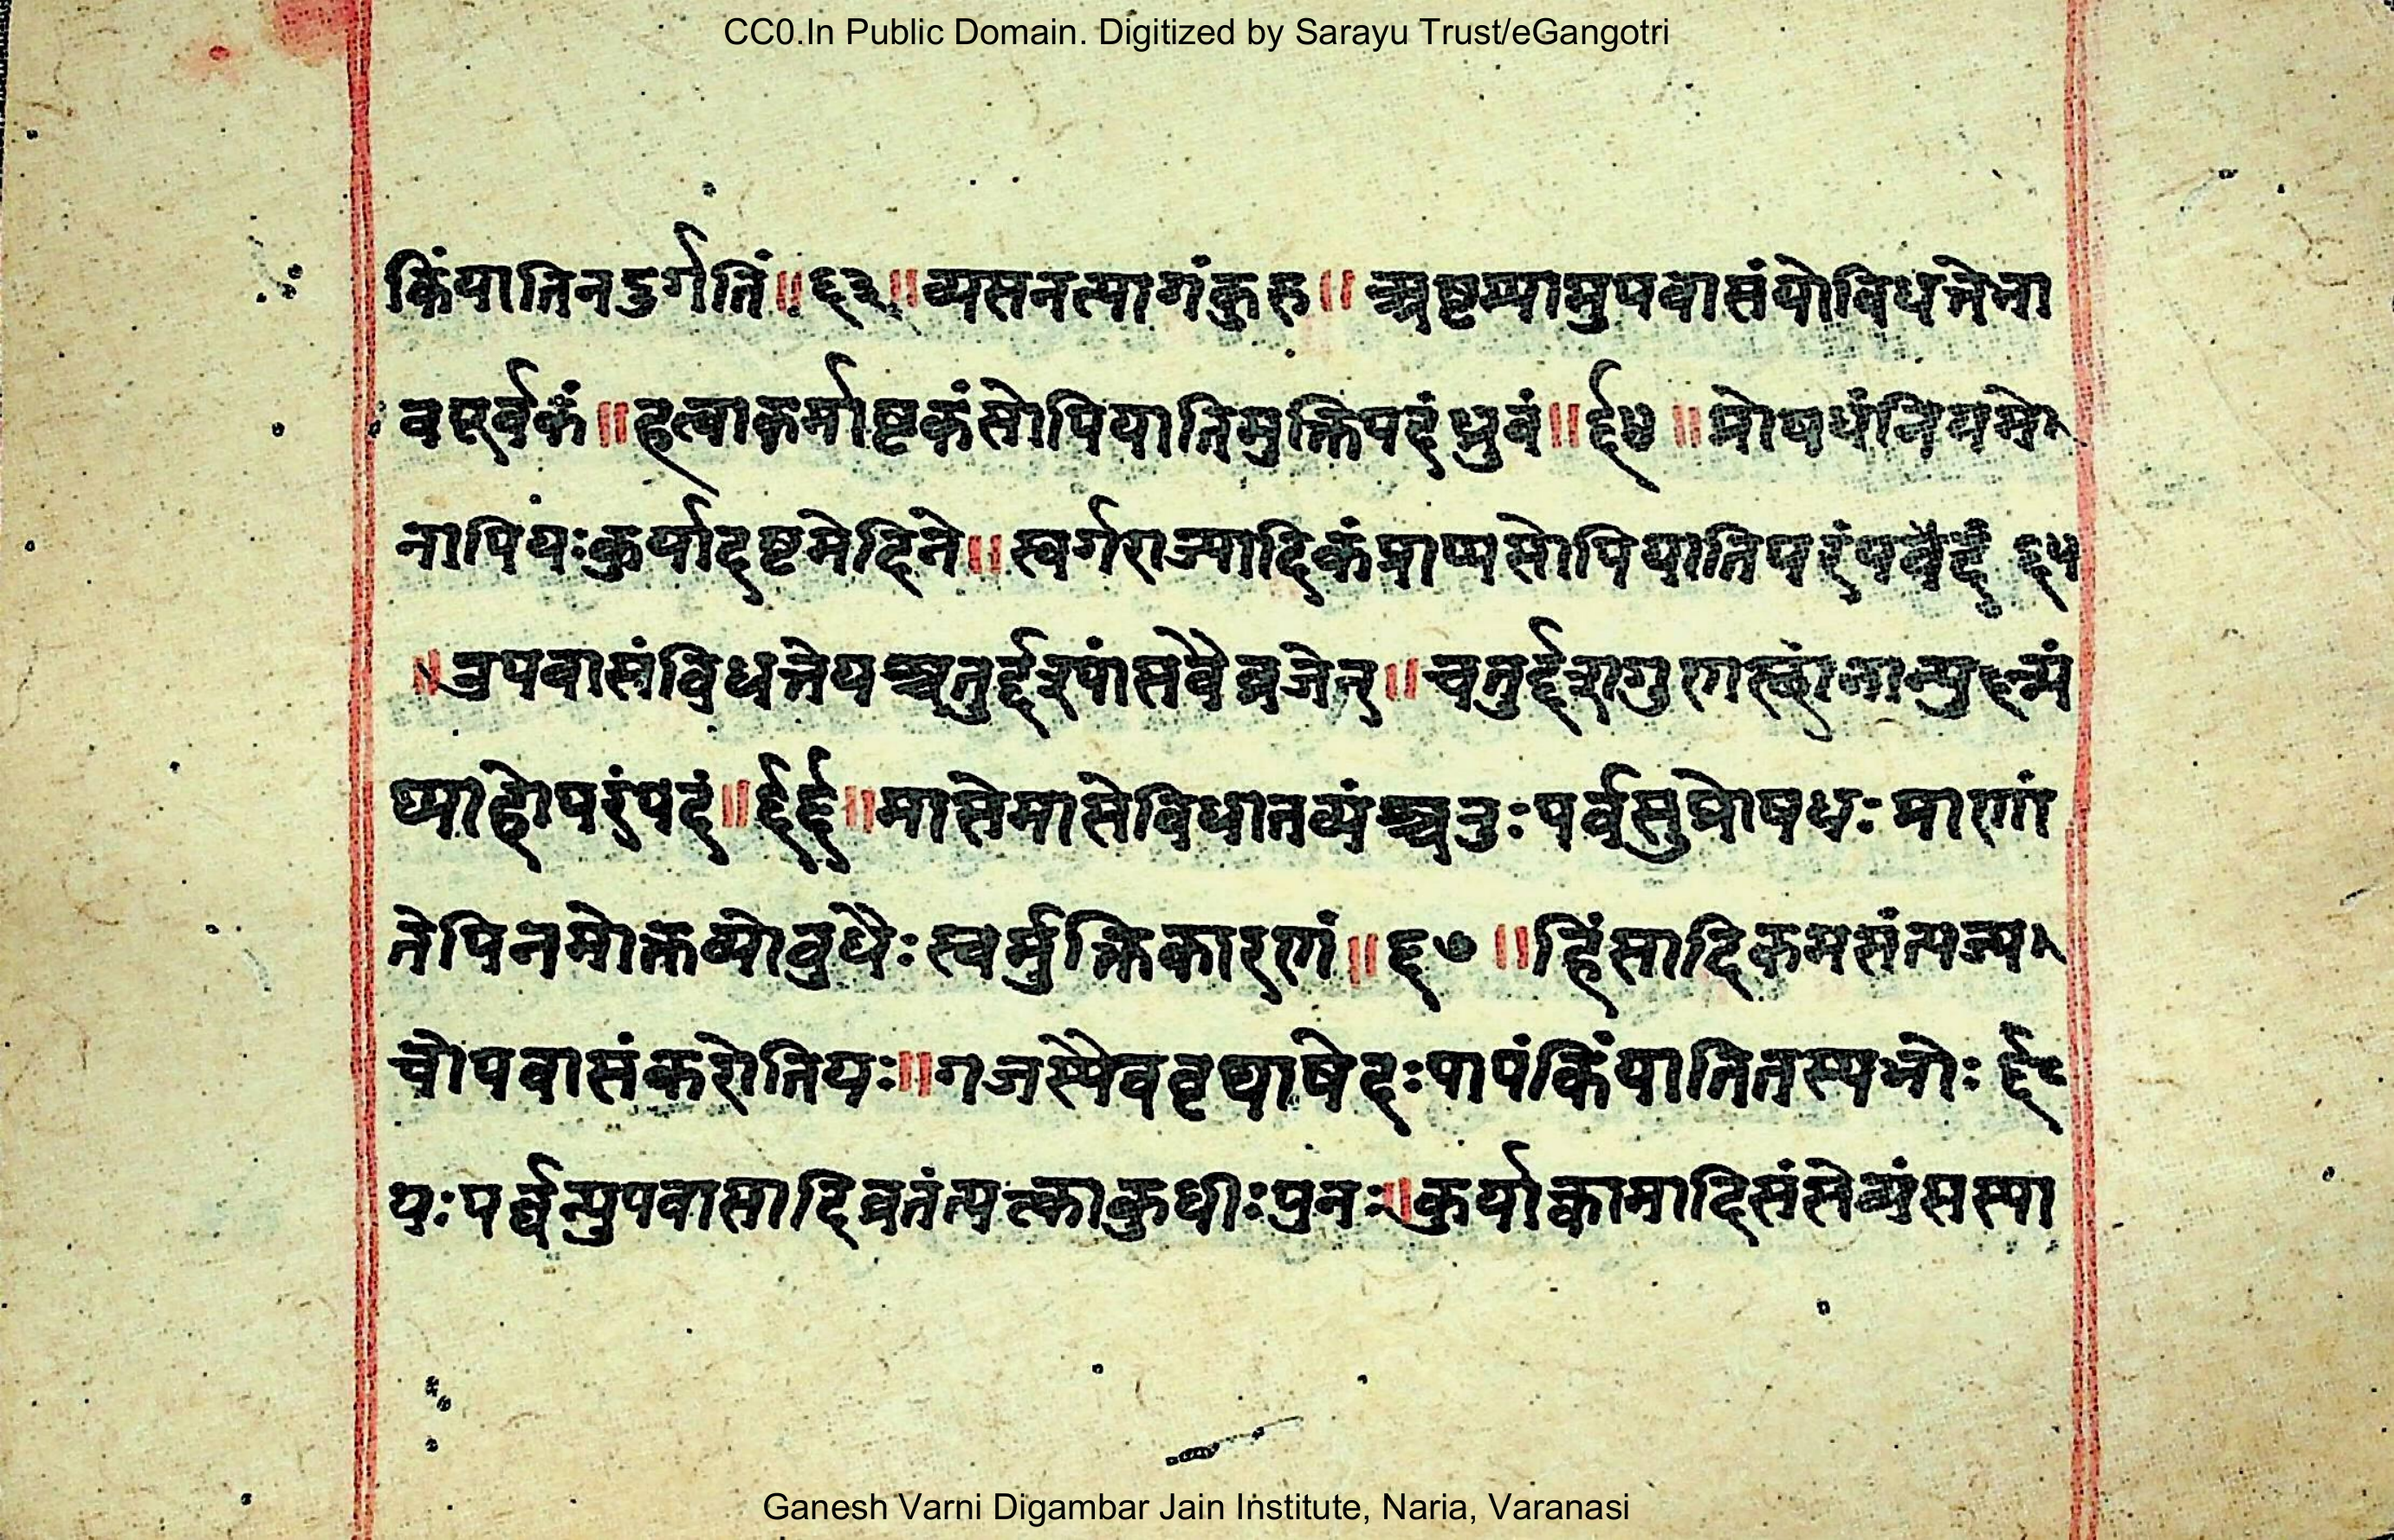 CC0.In Public Domain. Digitized by Sarayu Trust/eGangotri
किंयातिनदुर्गतिं॥६३॥व्यसनत्यागंकुरु॥अष्टम्यामुपवासंयोविधत्तेभा
वपूर्वकं॥हत्वाकर्माष्टकंसोपियातिमुक्तिपदंध्रुवं॥६४॥प्रोषधंनियमे
नापियःकुर्यादष्टमेदिने॥स्वर्गराज्यादिकंप्राप्यसोपियातिपरंपदं ६५
॥उपवासंविधत्तेयश्चतुर्द्दश्यांसवैव्रजेत्॥चतुर्द्दशगुणस्छानान्यु
प्याहोपरंपदं॥६६॥मासेमासेविधातव्यंश्चतुःपर्वसुप्रोषधः प्राणां
तेपिनमोक्तव्योबुधैःस्वर्मुक्तिकारणं॥६७॥हिंसादिकमसंत्यज्य
चोपवासंकरोतियः॥गजस्येववृथाषेदःपापंकिंयातितस्यभोः ६८
यःपर्वन्युपवासादिव्रतंत्यक्त्काकुधीःपुनः॥कुर्यात्कामादिसंसेव्यंसस्या
Ganesh Varni Digambar Jain Institute, Naria, Varanasi